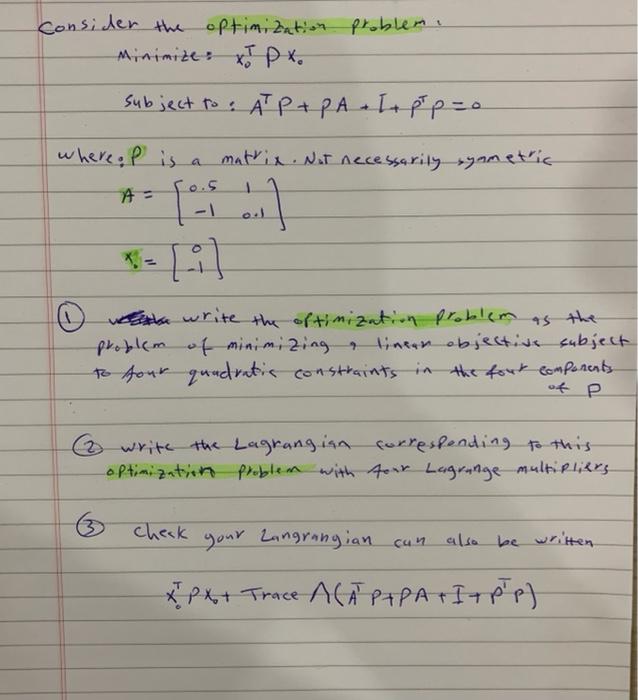 Consider the optimization problem:
Minimize: x₀ᵀ P x₀
Subject to: AᵀP + PA + I + PᵀP = 0
where: P is a matrix. Not necessarily symmetric
A = [0.5 1
-1 0.1]
x₀ = [0
-1]
① write the optimization problem as the
problem of minimizing a linear objective subject
to four quadratic constraints in the four components
of P
② write the Lagrangian corresponding to this
optimization problem with four Lagrange multipliers
③ check your Langrangian can also be written
x₀ᵀ P x₀ + Trace Λ(AᵀP + PA + I + PᵀP)